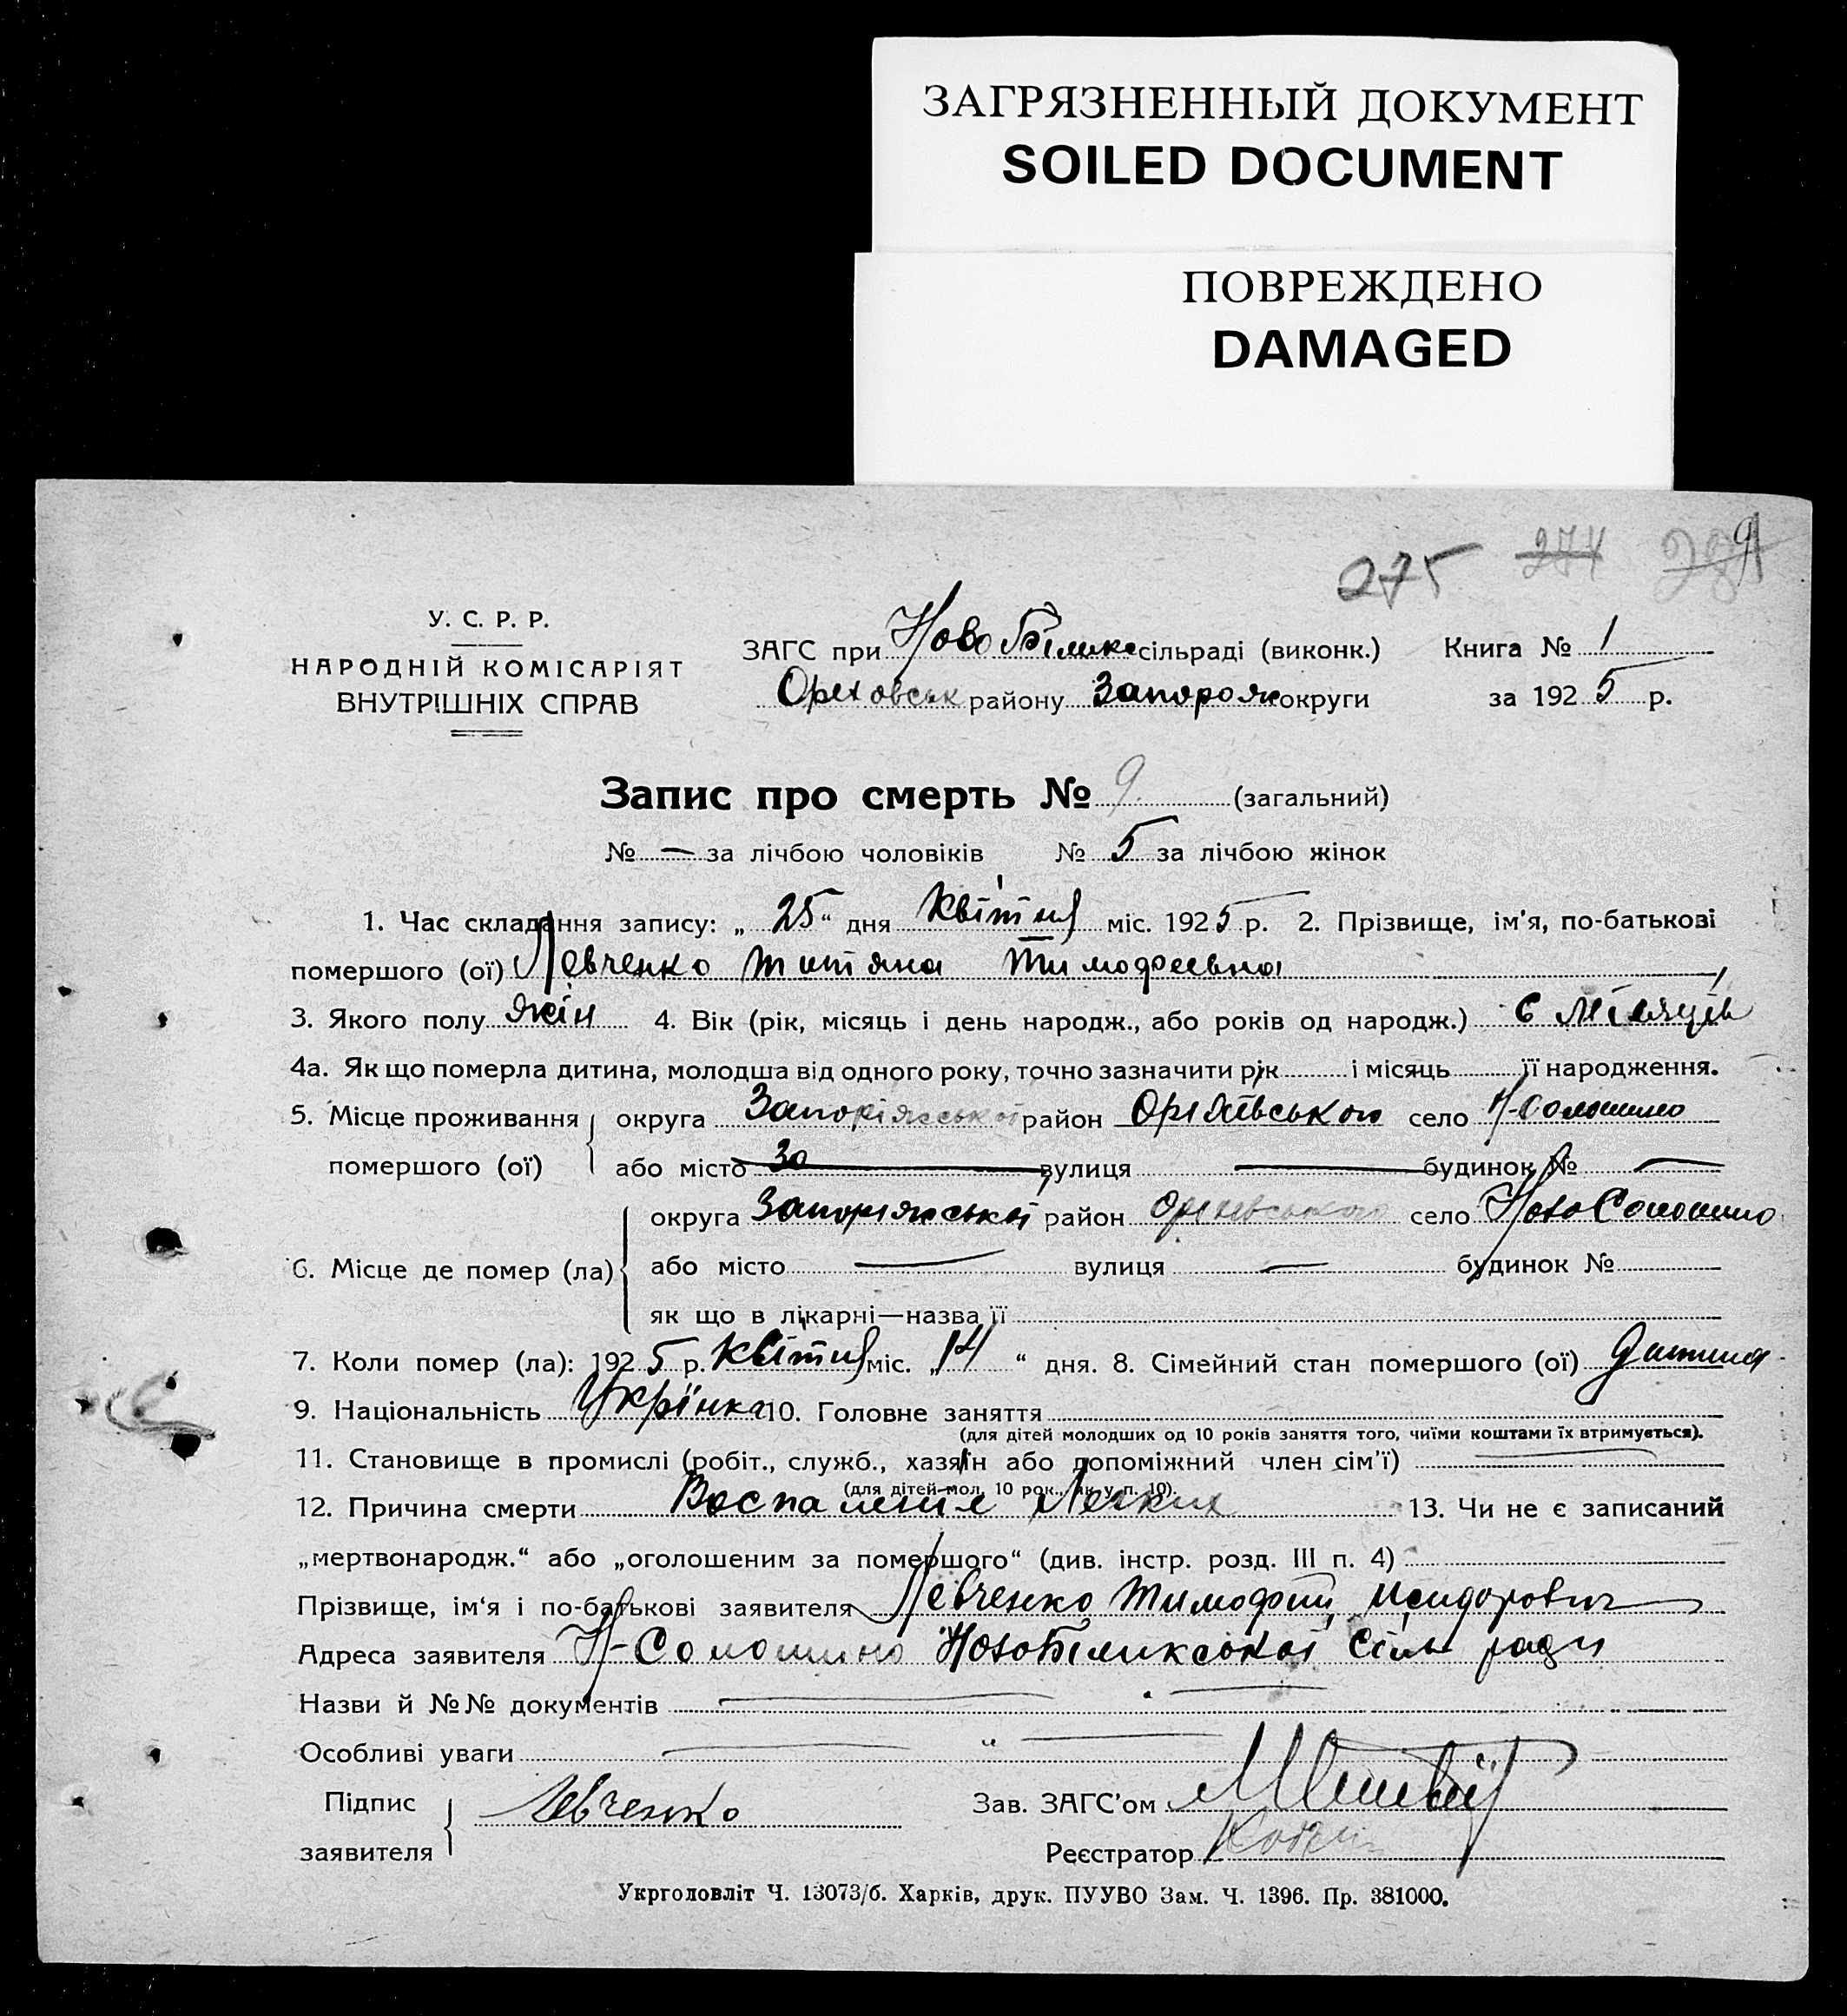 ЗАГРЯЗНЕННЫЙ ДОКУМЕНТ
SOILED DOCUMENT
ПОВРЕЖДЕНО
DAMAGED
275 274
9
У. С. Р. Р.
НАРОДНІЙ КОМІСАРІЯТ
ВНУТРІШНІХ СПРАВ
ЗАГС при Ново Білике сільраді (виконк.) Книга № 1
Ореховськ району Запорож округи за 1925 р.
Запис про смерть № 9 (загальний)
№ — за лічбою чоловіків № 5 за лічбою жінок
1. Час складання запису: „25“ дня Квітня міс. 1925 р. 2. Прізвище, ім'я, по-батькові
помершого (ої) Левченко Титяна Тимофеевна
3. Якого полу жін 4. Вік (рік, місяць і день народж., або років од народж.) 6 місяців
4а. Як що померла дитина, молодша від одного року, точно зазначити рік і місяць її народження.
5. Місце проживання округа Запоріжської район Оріхівського село Н-Солошино
помершого (ої) або місто За вулиця — будинок № —
округа Запоріжської район Оріхівського село Ново Солошино
6. Місце де помер (ла) або місто — вулиця — будинок №
як що в лікарні—назва її
7. Коли помер (ла): 1925 р. Квітня міс. „14“ дня. 8. Сімейний стан помершого (ої) Дитина
9. Національність Украінка 10. Головне заняття
(для дітей молодших од 10 років заняття того, чиїми коштами їх втримується).
11. Становище в промислі (робіт., служб., хазяїн або допоміжний член сім'ї) —
(для дітей мол. 10 рок., як у п. 10).
12. Причина смерти Воспаленіє Легких 13. Чи не є записаний
„мертвонародж.“ або „оголошеним за помершого“ (див. інстр. розд. III п. 4)
Прізвище, ім'я і по-батькові заявителя Левченко Тимофій Исидорович
Адреса заявителя Н-Солошино НовоБіликської Сіль ради
Назви й №№ документів —
Особливі уваги — „ —
Підпис Левченко Зав. ЗАГС'ом
заявителя Реєстратор
Укрголовліт Ч. 13073/б. Харків, друк. ПУУВО Зам. Ч. 1396. Пр. 381000.